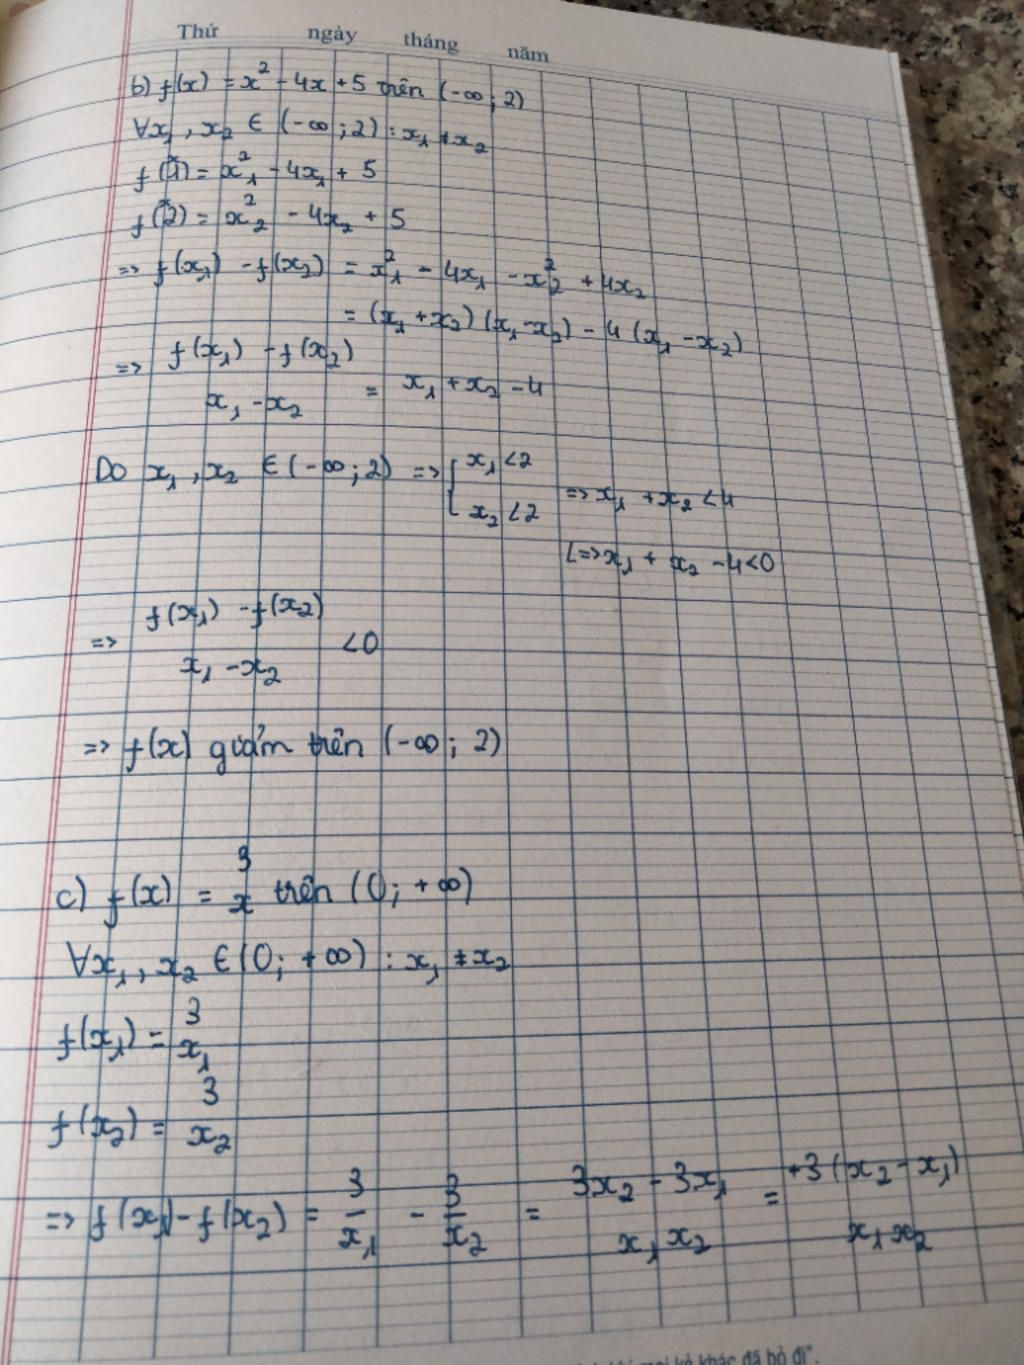 Thứ ngày tháng năm
b) f(x) = x² - 4x + 5 trên (-∞; 2)
∀x₁, x₂ ∈ (-∞; 2) : x₁ ≠ x₂
f(x₁) = x₁² - 4x₁ + 5
f(x₂) = x₂² - 4x₂ + 5
=> f(x₁) - f(x₂) = x₁² - 4x₁ - x₂² + 4x₂
= (x₁ + x₂) (x₁ - x₂) - 4 (x₁ - x₂)
=> f(x₁) - f(x₂) / x₁ - x₂ = x₁ + x₂ - 4
Do x₁, x₂ ∈ (-∞; 2) => { x₁ < 2
x₂ < 2 => x₁ + x₂ < 4
<=> x₁ + x₂ - 4 < 0
=> f(x₁) - f(x₂) / x₁ - x₂ < 0
=> f(x) giảm trên (-∞; 2)
c) f(x) = 3/x trên (0; +∞)
∀x₁, x₂ ∈ (0; +∞) : x₁ ≠ x₂
f(x₁) = 3/x₁
f(x₂) = 3/x₂
=> f(x₁) - f(x₂) = 3/x₁ - 3/x₂ = 3x₂ - 3x₁ / x₁x₂ = +3(x₂ - x₁) / x₁x₂
kẻ khác đã bỏ đi".